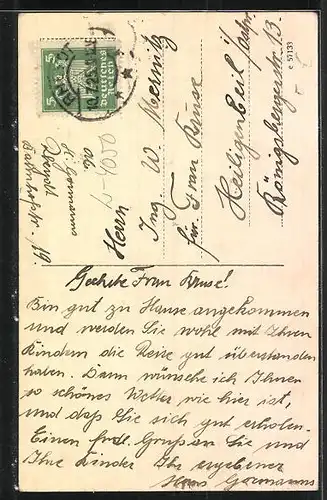 5 Deutsches Reich 5
Abs.
H. Germanns
Bahnhofstr. 19.
Herrn
Ing W. Mernitz
für Frau Kruse
Heiligenbeil
Königsbergerstr. 13
e 57133
Geehrte Frau Kruse!
Bin gut zu Hause angekommen
und werden Sie wohl mit Ihren
Kindern die Reise gut überstanden
haben. Dann wünsche ich Ihnen
so schönes Wetter wie hier ist,
und daß Sie sich gut erholen.
Einen frdl. Gruß an Sie und
Ihre Kinder Ihr ergebener
Hans Germanns